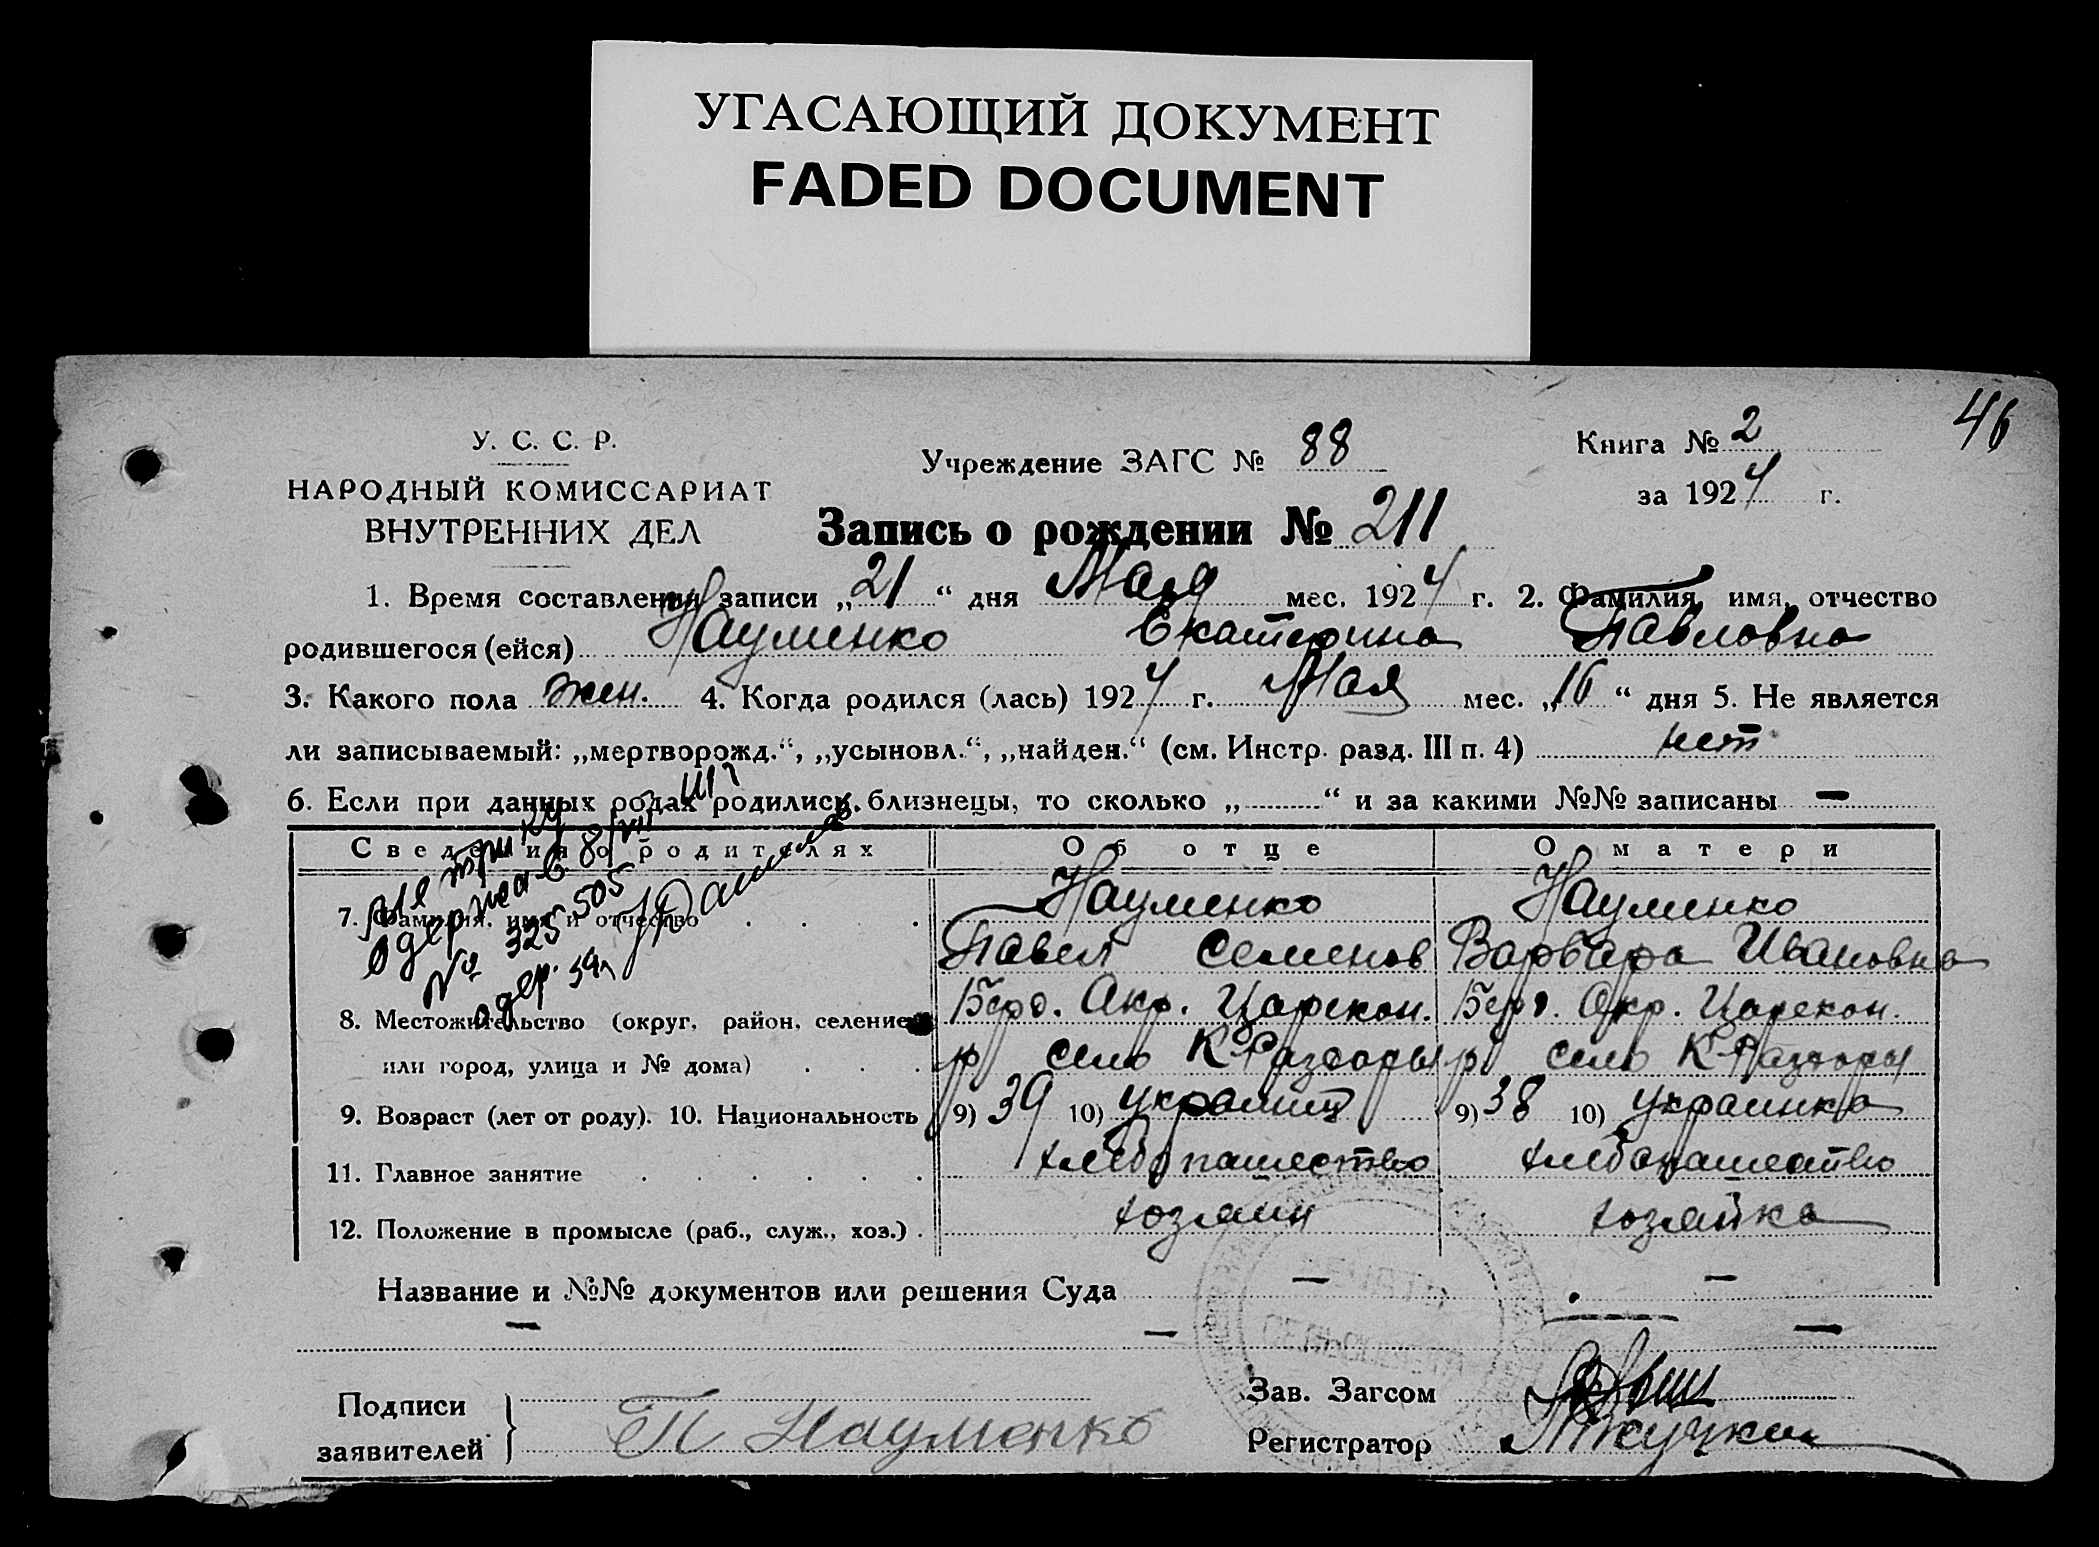 УГАСАЮЩИЙ ДОКУМЕНТ
FADED DOCUMENT
46
У. С. С. Р.
НАРОДНЫЙ КОМИССАРИАТ
ВНУТРЕННИХ ДЕЛ
Учреждение ЗАГС № 88
Книга № 2
за 1924 г.
Запись о рождении № 211
1. Время составления записи „21“ дня Мая мес. 1924 г. 2. Фамилия, имя, отчество
родившегося (ейся) Науменко Екатерина Павловна
3. Какого пола жен. 4. Когда родился (лась) 1924 г. Мая мес. „16“ дня 5. Не является
ли записываемый: „мертворожд.“, „усыновл.“, „найден.“ (см. Инстр. разд. III п. 4) нет
6. Если при данных родах родились близнецы, то сколько „ “ и за какими №№ записаны —
Сведения о родителях Об отце О матери
7. Фамилия, имя и отчество Науменко Науменко
Павел Семенов Варвара Ивановна
8. Местожительство (округ, район, селение Берд. Окр. Царекон. Берд. Окр. Царекон.
или город, улица и № дома) р село К-Раздоры р село К-Раздоры
9. Возраст (лет от роду). 10. Национальность 9) 39 10) украинц 9) 38 10) украинка
11. Главное занятие хлебопашество хлебопашество
12. Положение в промысле (раб., служ., хоз.) хозяин хозяйка
Метрику
одержав 8/VII
№ 325505
Название и №№ документов или решения Суда — —
— — —
Подписи
заявителей
П Науменко
Зав. Загсом
Регистратор